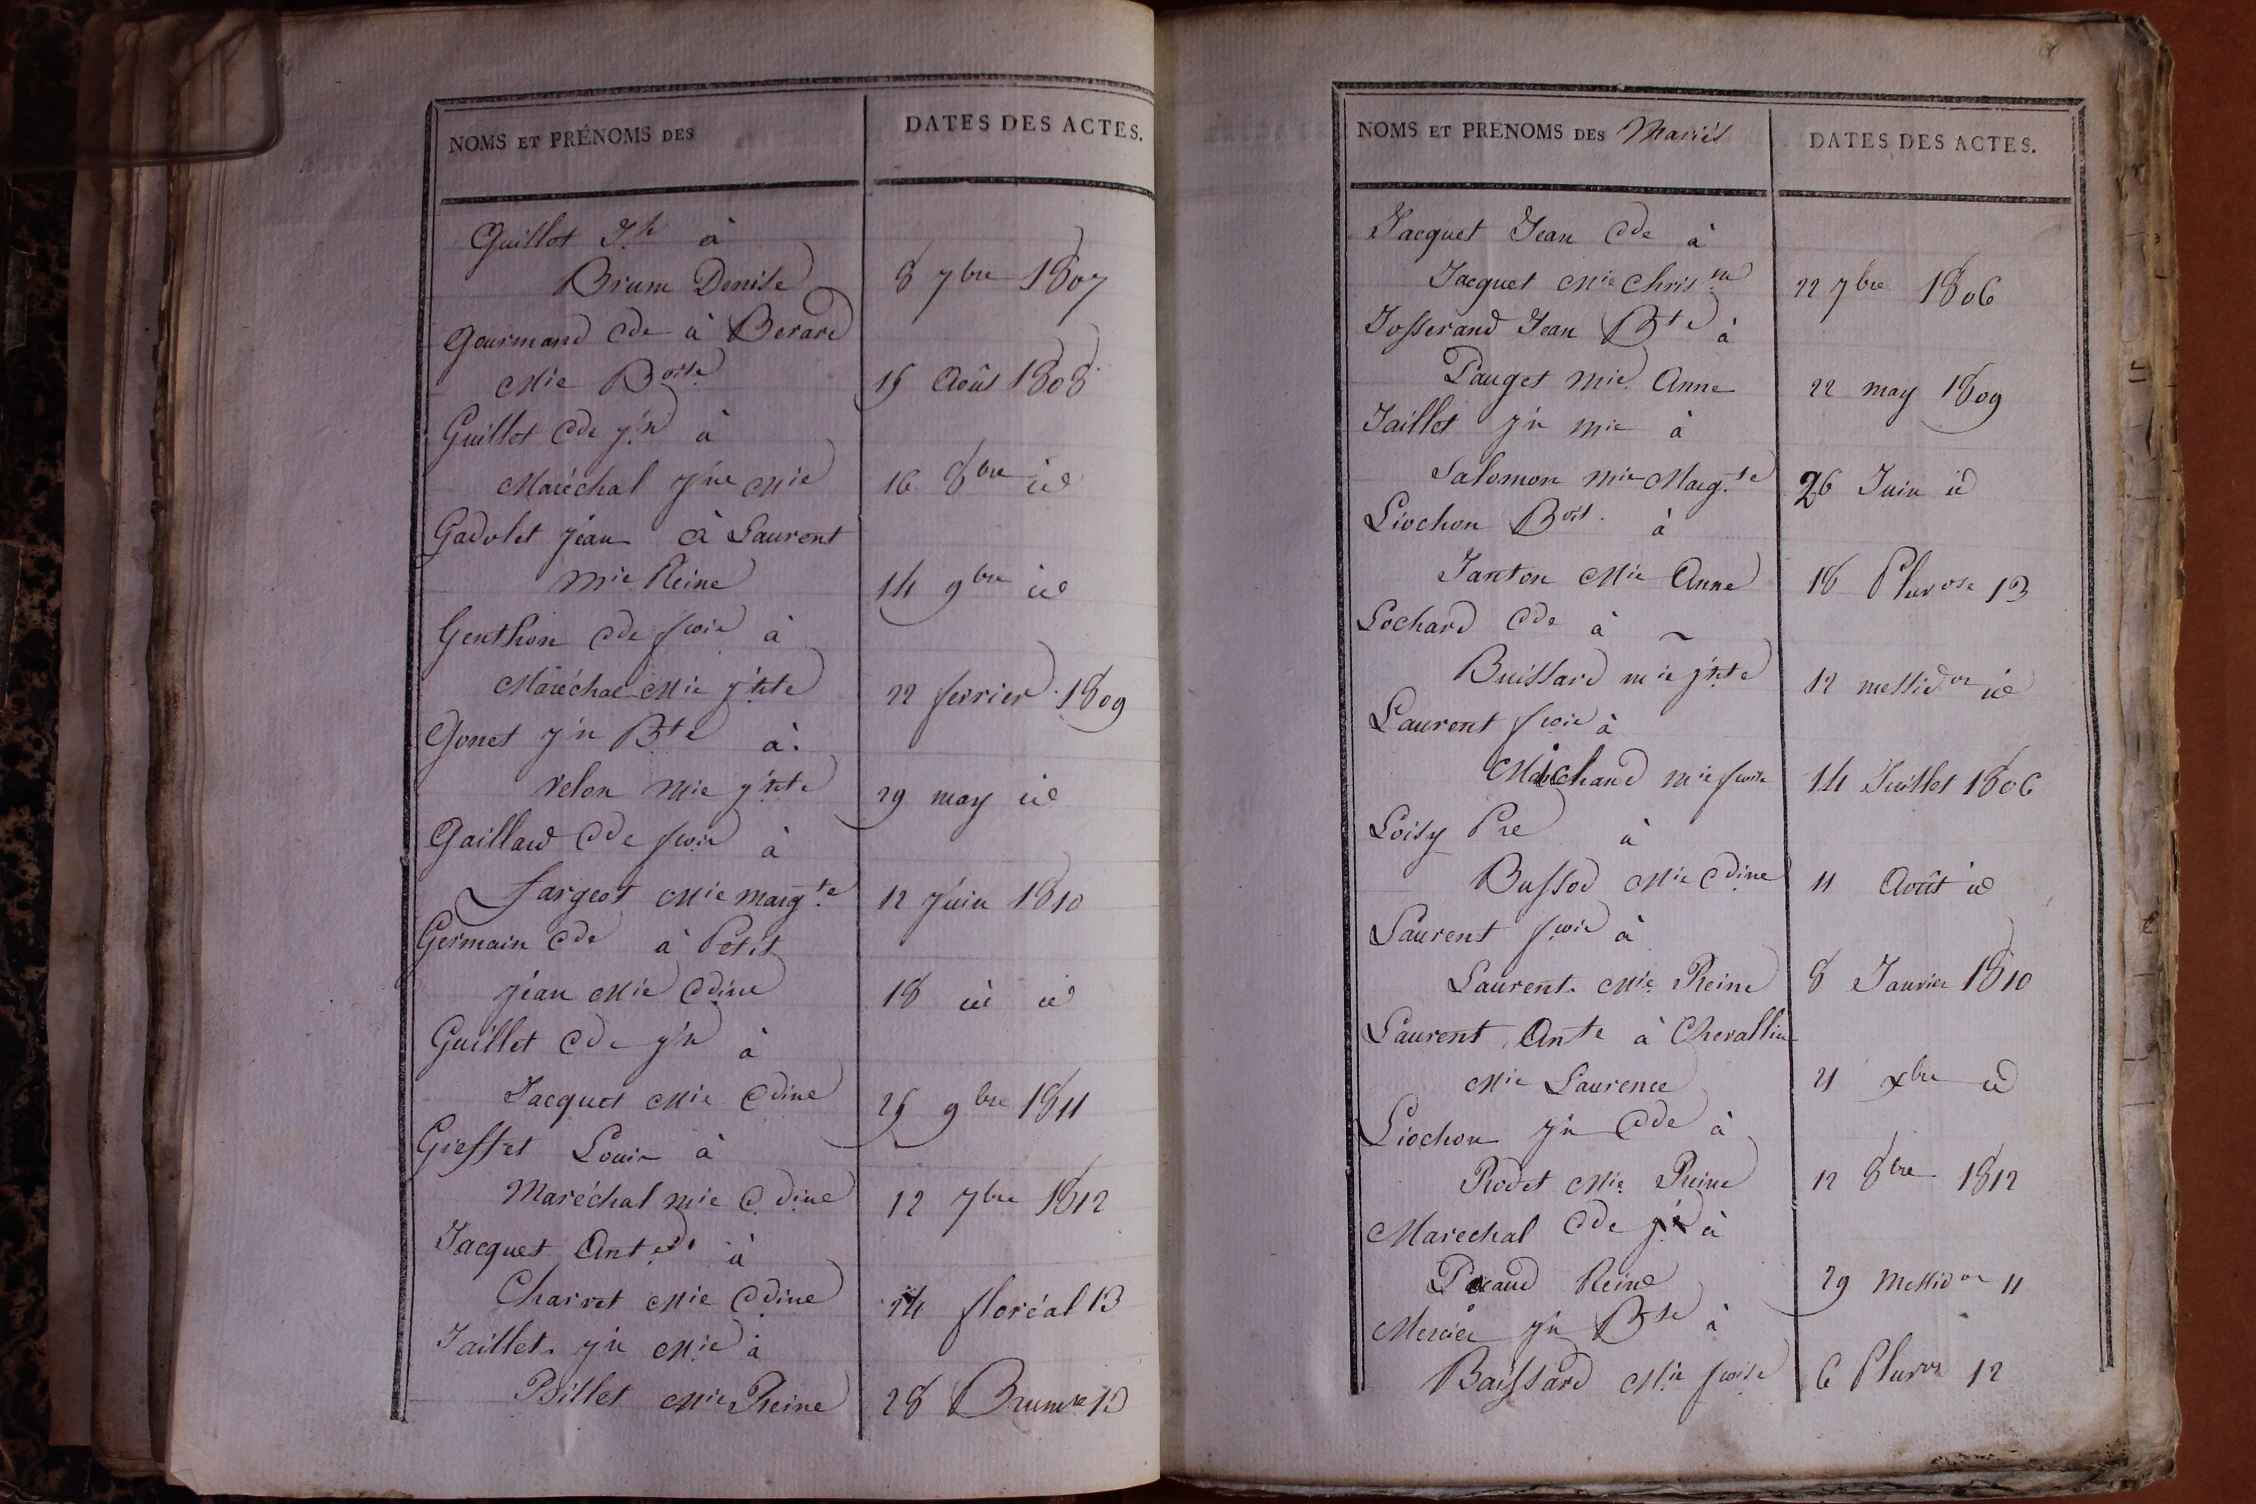 NOMS ET PRÉNOMS DES
DATES DES ACTES.
Guillot Jh à
Brum Denise 8 7bre 1807
Gourmand Cde à Berard
Mie Boite 15 Août 1808
Guillot Cde j'n à
Maréchal j'ne Mie 16 8bre id
Gadolet jean à Laurent
Mie Reine 14 9bre id
Genthon Cde fcois à
Maréchal Mie j'tte 22 fevrier 1809
Gonet j'n Bte à
Velon Mie j'tte 29 may id
Gaillard Cde fcois à
Fargeot Mie margte 12 juin 1810
Germain Cde à Petit
jean Mie Cdine 18 id id
Guillet Cde j'n à
Jacquet Mie Cdine 25 9bre 1811
Greffet Louis à
Maréchal Mie Cdine 12 7bre 1812
Jacquet Ante à
Charret Mie Cdine 14 floréal 13
Jaillet j'n Mie à
Billet Mie Reine 28 Brumre 13
NOMS ET PRÉNOMS DES Mariés
DATES DES ACTES.
Jacquet Jean Cde à
Jacquet Mie Chrisne 22 7bre 1806
Josserand Jean Bte à
Pauget Mie Anne 22 may 1809
Jaillet j'n Mie à
Salomon Mie Margte 26 Juin id
Liochon Boit à
Janton Mie Anne 18 Pluvose 13
Lochard Cde à
Buissard Mie j'tte 12 messidor id
Laurent fcois à
Michaud Mie fcoise 14 Juillet 1806
Loisy Pre à
Bussod Mie Cdine 11 Août id
Laurent fcois à
Laurent Mie Reine 8 Janvier 1810
Laurent Ante à Chevallier
Mie Laurence 21 xbre id
Liochon j'n Cde à
Rodet Mie Reine 12 8bre 1812
Marechal Cde j'n à
Reine 29 Messidor 11
Mercier j'n Bte à
Baissard Mie fcoise 6 Pluvse 12